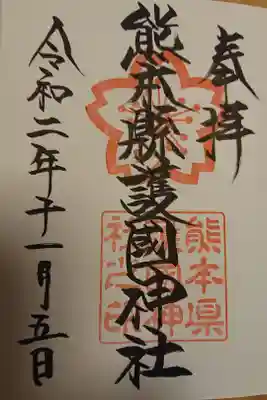 奉拝
熊本縣護國神社
令和二年十一月五日
熊本県
護国神
社之印